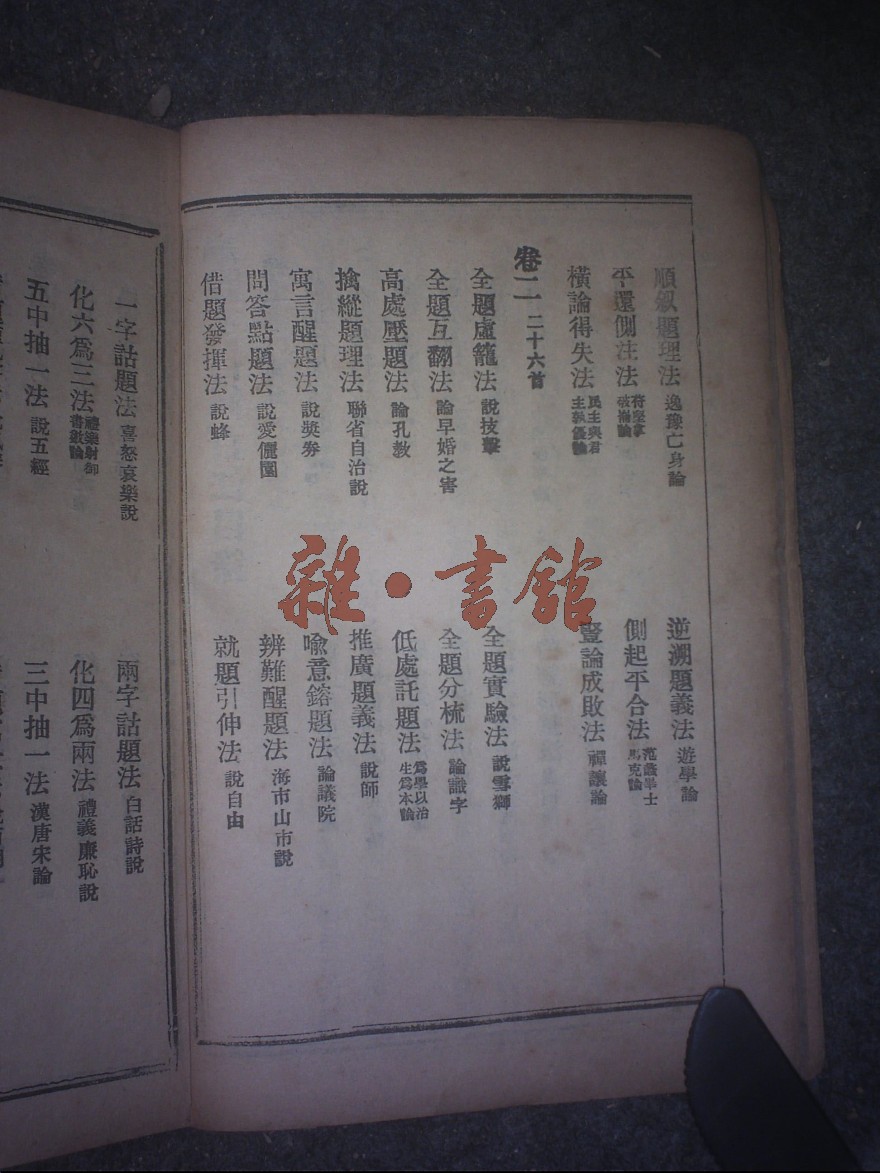 順叙題理法 逸豫亡身論
逆溯題義法 遊學論
平還側注法 苻堅拿破崙論
側起平合法 范蠡畢士馬克論
橫論得失法 民主與君主孰優論
豎論成敗法 禪讓論
卷二 二十六首
全題虛籠法 說技擊
全題實驗法 說雪獅
全題互翻法 論早婚之害
全題分梳法 論識字
高處壓題法 論孔教
低處託題法 爲學以治生爲本論
擒縱題理法 聯省自治說
推廣題義法 說師
寓言醒題法 說獎券
喻意鎔題法 論議院
問答點題法 說愛儷園
辨難醒題法 海市山市說
借題發揮法 說蜂
就題引伸法 說自由
一字詁題法 喜怒哀樂說
兩字詁題法 白話詩說
化六爲三法 禮樂射御書數論
化四爲兩法 禮義廉恥說
五中抽一法 說五經
三中抽一法 漢唐宋論
雜·書館